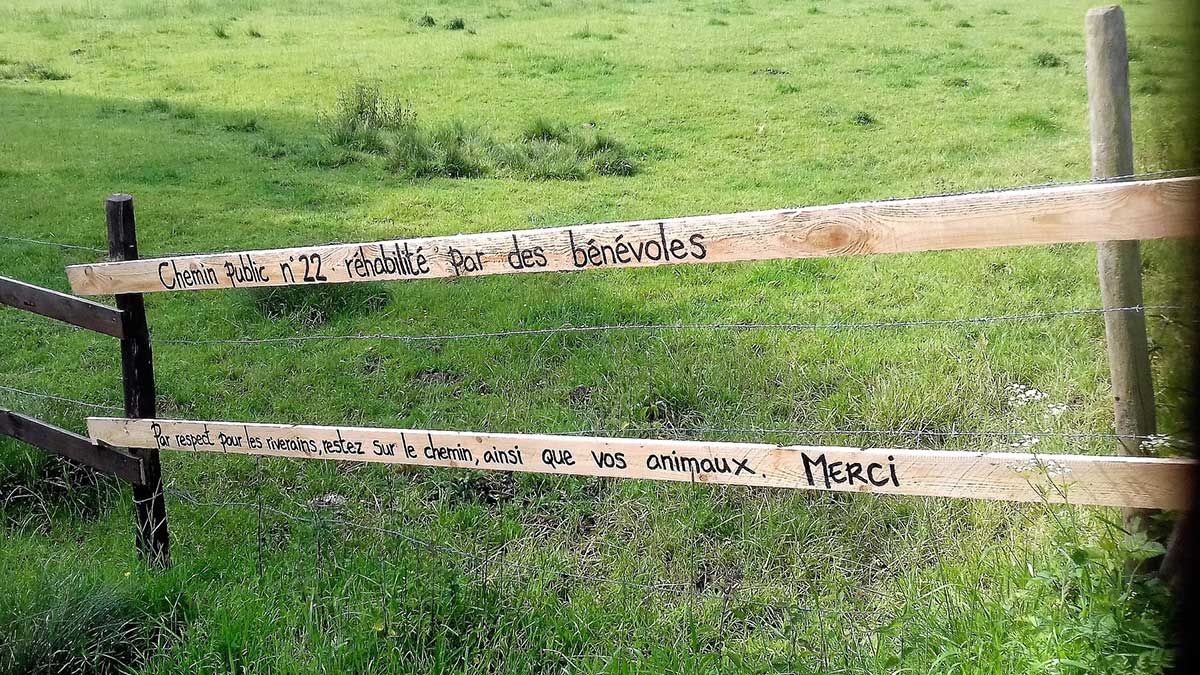 Chemin public n°22 réhabilité par des bénévoles
Par respect pour les riverains, restez sur le chemin, ainsi que vos animaux. MERCi